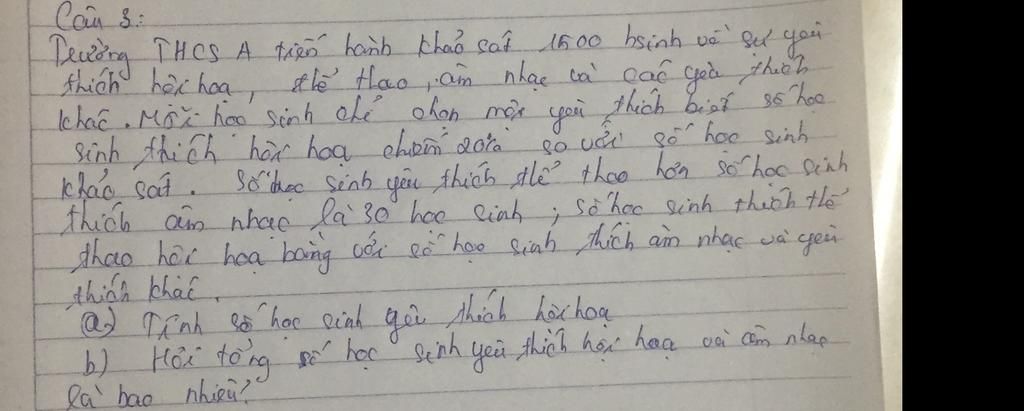 Câu 3:
Trường THCS A tiến hành khảo sát 1500 hsinh về sự yêu
thích hội hoạ, thể thao, âm nhạc và các yêu thích
khác. Mỗi học sinh chỉ chọn một yêu thích biết số học
sinh thích hội hoạ chiếm 20% so với số học sinh
khảo sát. Số học sinh yêu thích thể thao hơn số học sinh
thích âm nhạc là 30 học sinh; số học sinh thích thể
thao hội hoạ bằng với số học sinh thích âm nhạc và yêu
thích khác.
a) Tính số học sinh yêu thích hội hoạ
b) Hỏi tổng số học sinh yêu thích hội hoạ và âm nhạc
là bao nhiêu?